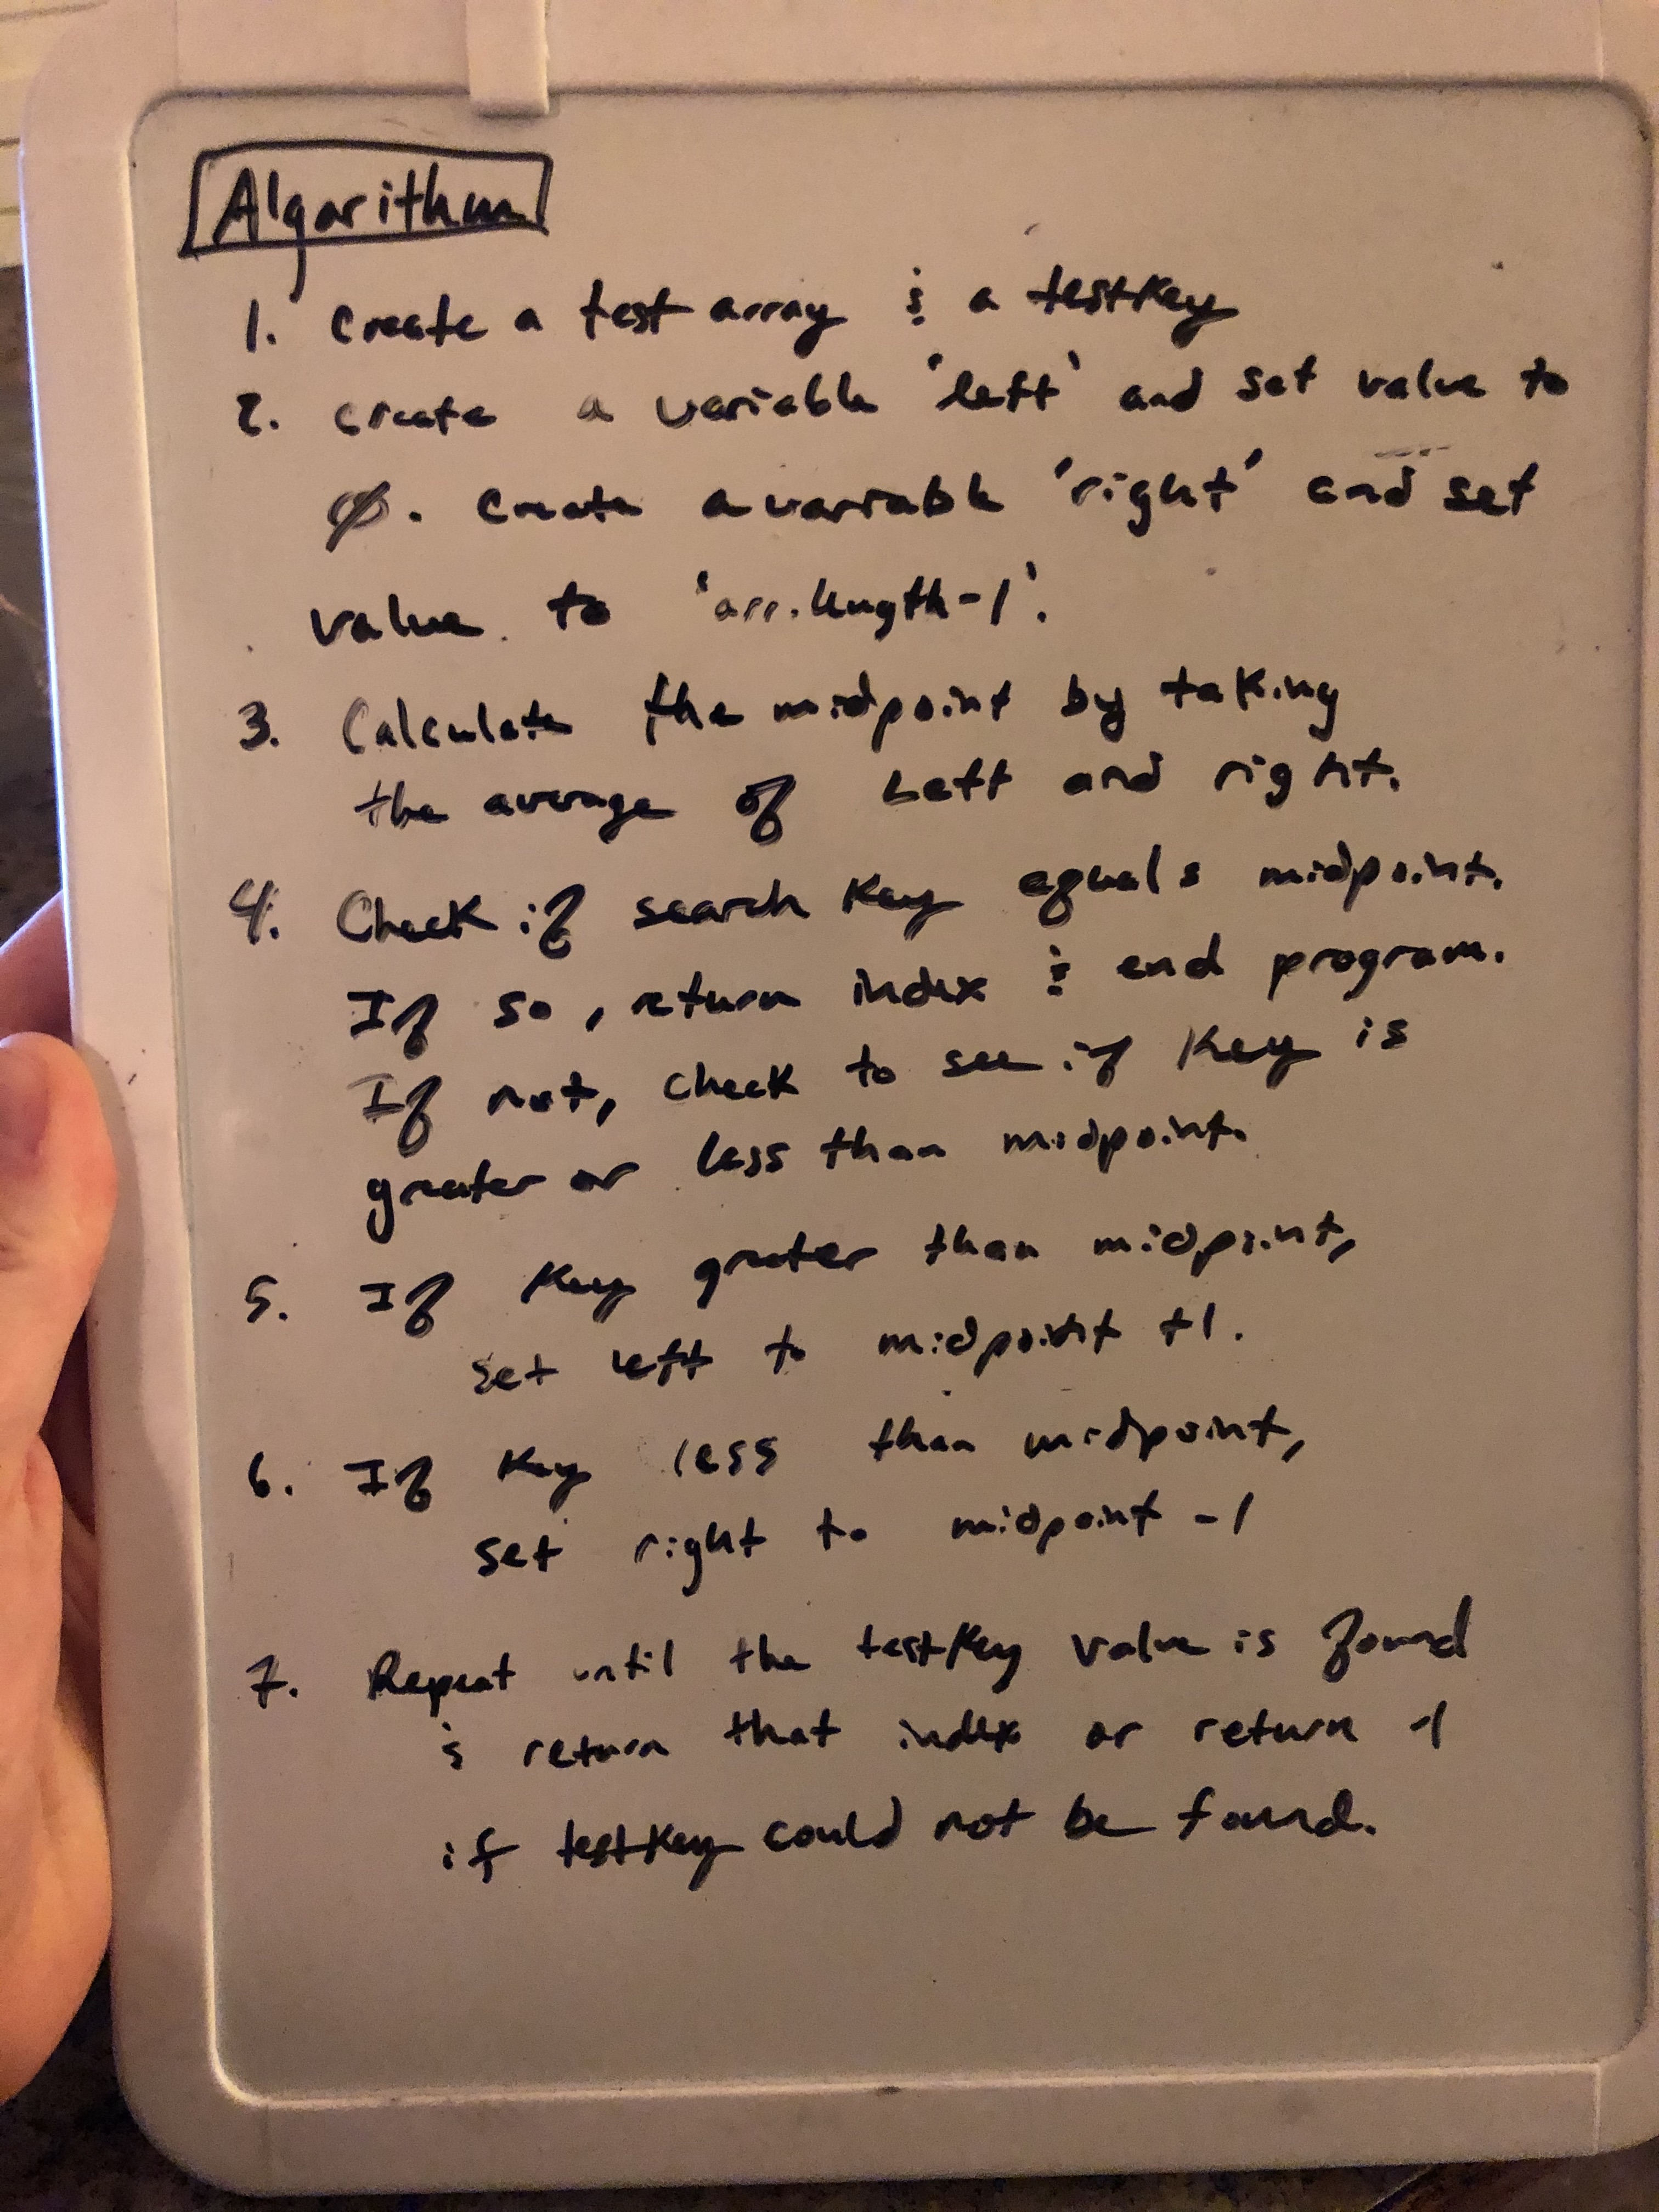 Algorithm
1. Create a test array & a testKey
2. create a variable 'left' and set value to
0. Create a variable 'right' and set
value to 'arr.length-1'.
3. Calculate the midpoint by taking
the average of left and right.
4. Check if search key equals midpoint.
If so, return index & end program.
If not, check to see if key is
greater or less than midpoint.
5. If key greater than midpoint,
set left to midpoint +1.
6. If key less than midpoint,
set right to midpoint -1
7. Repeat until the testKey value is found
& return that index or return -1
if testKey could not be found.